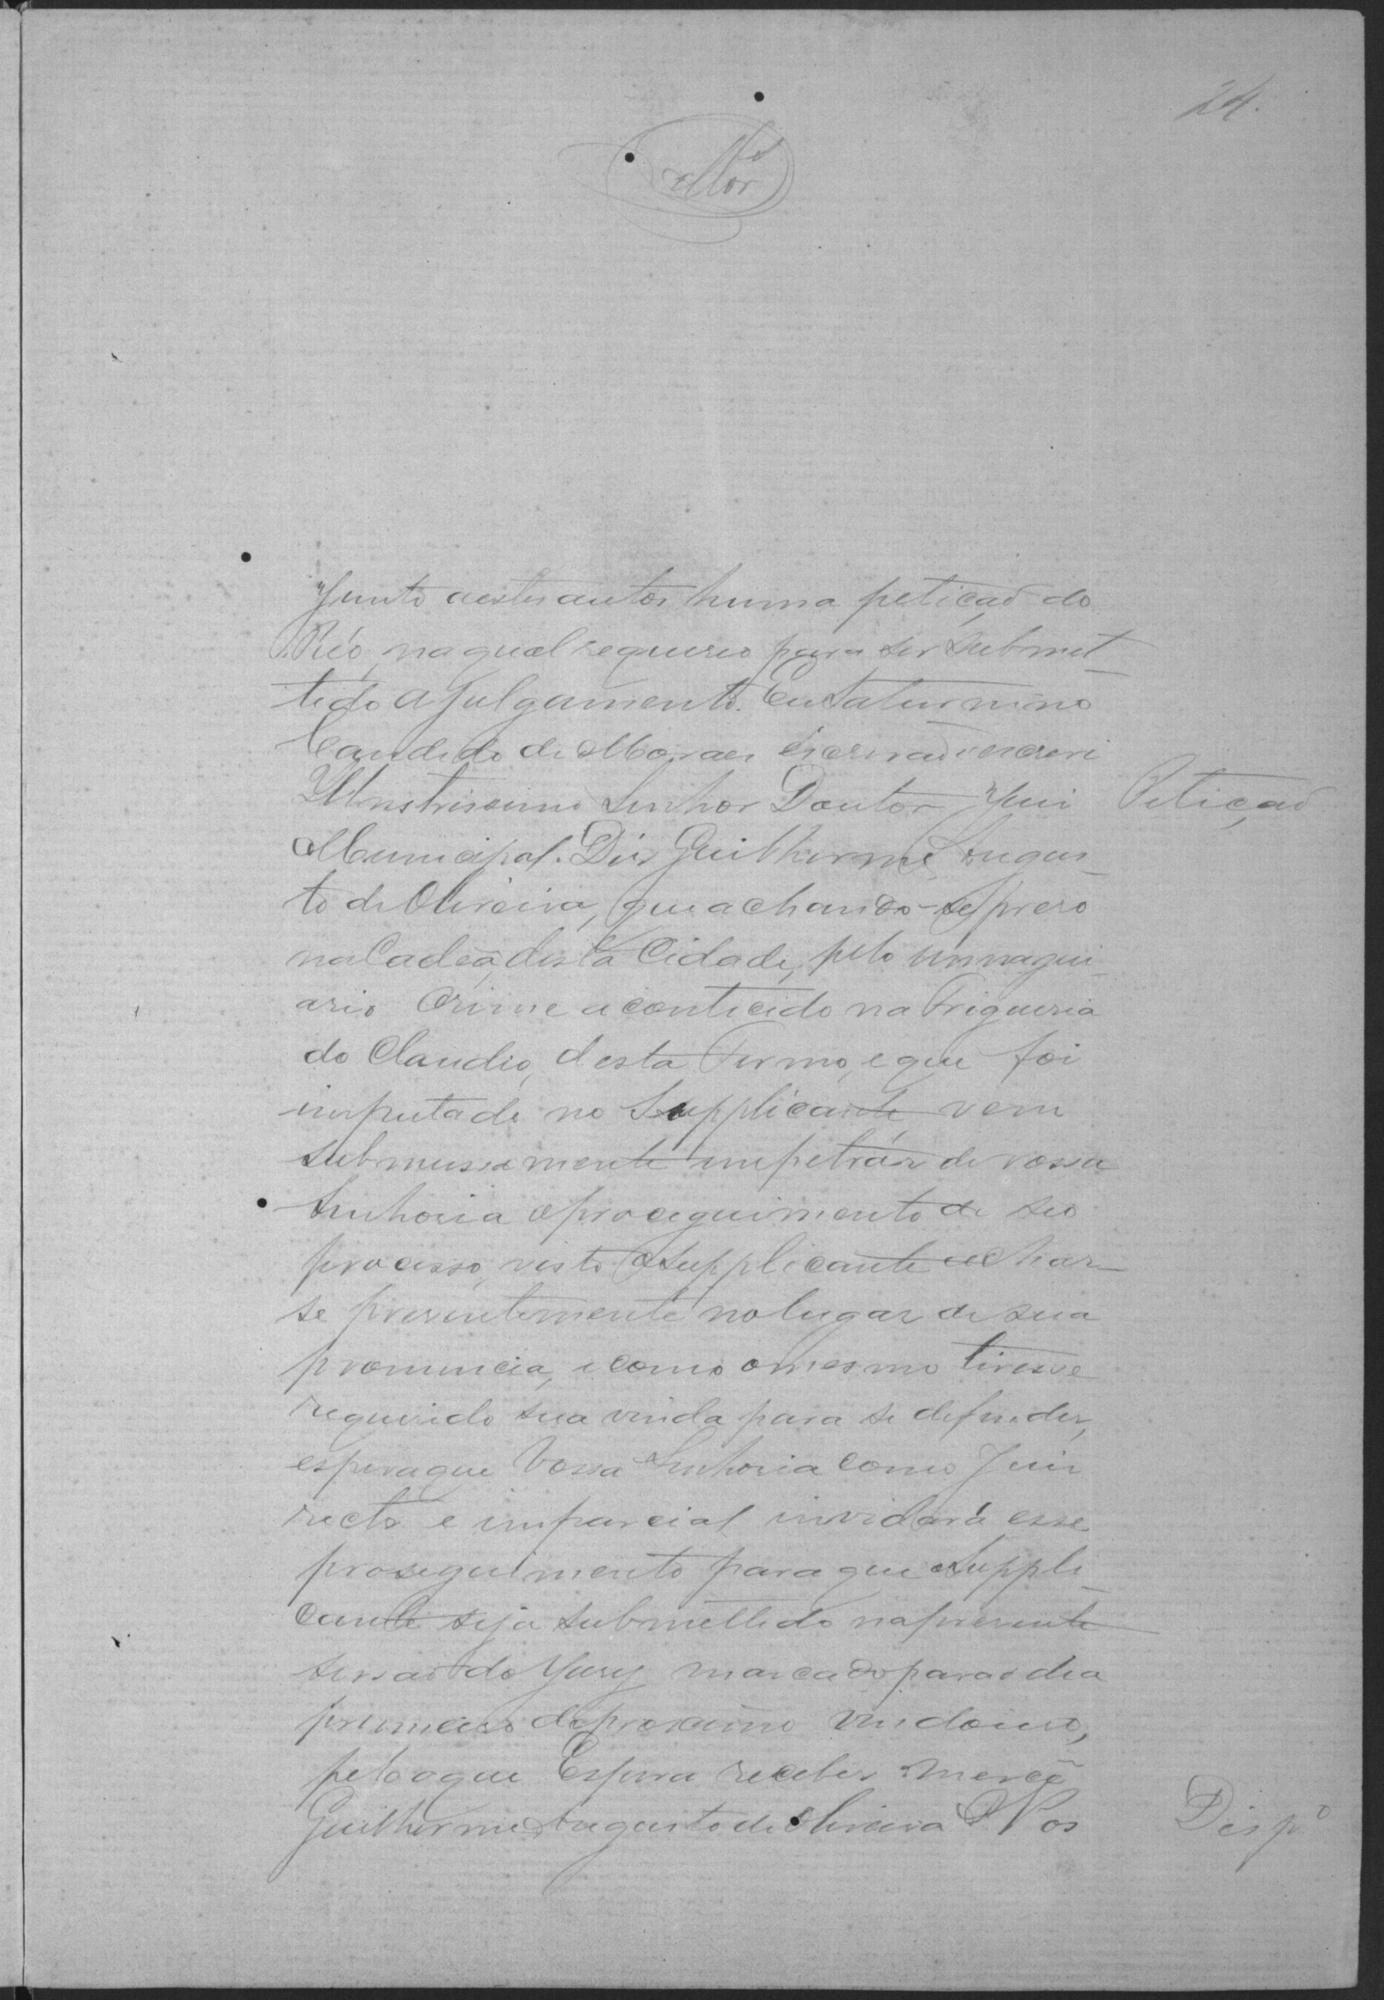 24.
Mor.es
Junto aestes autos huma petiçaõ do
Réo, na qual requereo para ser submet-
tido a julgamento. Eu Saturnino
Candido de Moraes escrivaõ escrevi
Illustrissimo Senhor Doutor Juis Petiçaõ
Municipal. Dis Guilherme Augus-
to de Oliveira, que achando-se preso
na Cadêa desta Cidade, pelo immagui-
ario Crime acontecido na Frigueria
do Claudio, desta Termo, e que foi
imputado no Supplicante, vem
submissamente impetrár de vossa
Senhoria o prosiguimento de seo
processo, visto o Supplicante achar-
se presentemente no lugar de sua
pronuncia, e como o mesmo tivesse
requerido sua vinda para se defender,
espera que Vossa Senhoria como Juis
recto e imparcial invidará esse
proseguimento para que o Suppli-
cante seja submettido na presente
sessaõ do Jury marcado para o dia
primeiro do proximo vindouro,
pelo o que Espera receber mercê
Guilherme Augusto de Oliveira Nos Desp.o